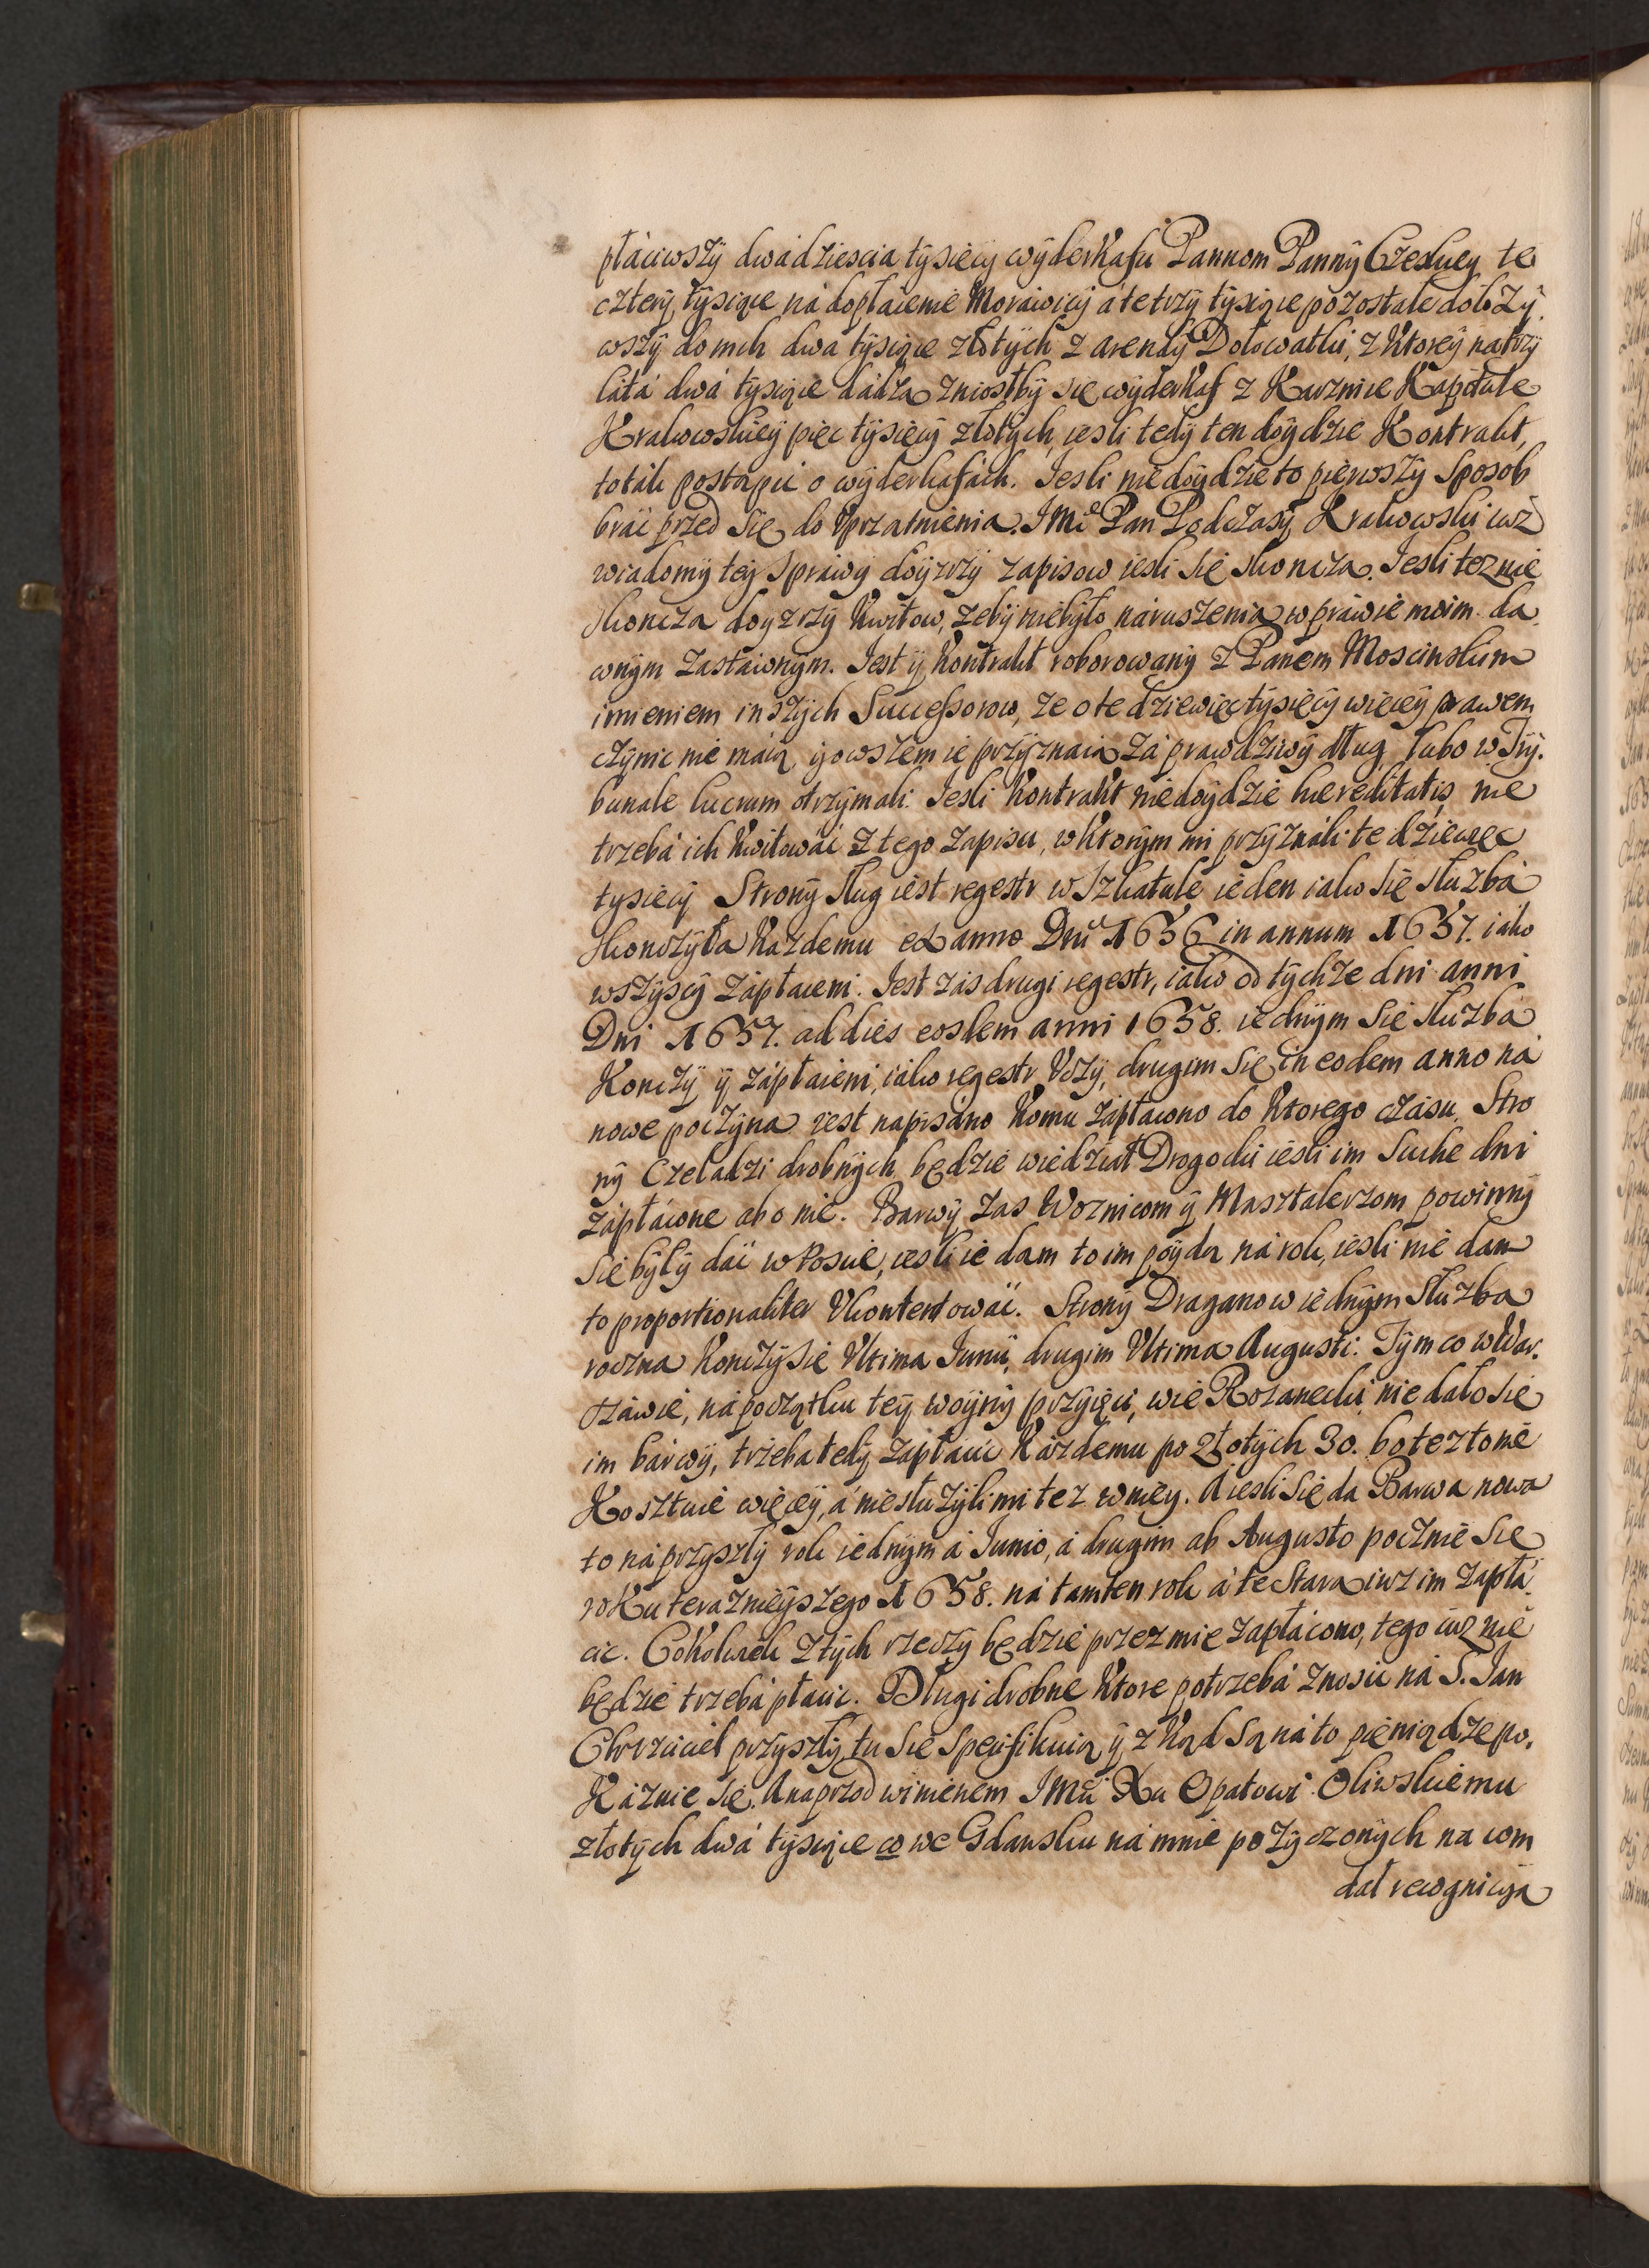 płáciwszÿ dwádziescia tÿsięcÿ wÿderkafu Pannom Pannÿ Czeskiey te
czterÿ tÿsiące ná dopłácenié Moráwicÿ á te trzÿ tÿsiące pozostałe dołozÿ.
wszÿ do nich dwá tÿsiące złotÿch z arendÿ Dołowatki, z ktoreÿ na trzÿ
látá dwá tÿsiące dádzą zniosłbÿ się wÿderkaf z Karznice Kapitule
Krakowskieÿ pięć tÿsięcÿ złotÿch, iesli tedÿ ten dóÿdzie Kontrakt,
to ták postąpić o wÿderkafách. Iesli niedóÿdzie to pierwszÿ sposob
bráć przed się do Vprzatnienia. IMć Pan Podczaszÿ Krakowski iuż
wiadomÿ teÿ spráwÿ doÿzrzÿ zapisow iesli się skonczą. Iesli tez nie
skonczą doyzrzÿ kwitow, zebÿ niebÿło náruszenia w práwie moim da
wnÿm zastáwnÿm. Iest ÿ kontrakt roborowanÿ z Panem Moscinskim
imieniem inszÿch Successorow, ze o te dziewięć tÿsięcÿ więceÿ prawem
czÿnic nie máią ÿ owszem ie przÿznaią zá prawdziwÿ dług, lubo w Trÿ.
bunale lucrum otrzÿmali. Iesli kontrakt niedoÿdzie hiereditatis nie
trzebá ich kwitowáć z tego zapisu, w ktorÿm mi przÿználi te dziewięć
tysięcÿ Stronÿ sług iest regestr w Szkatule ieden iako się słuzbá
skonczÿła kazdemu ex anno Dni 1656 in annum 1657. iako
wszÿscÿ zápłaceni. Iest zás drugi regestr, iako od tÿchze dni anni
Dni 1657. ad dies eosdem anni 1658. iednÿm się słuzbá
Konczÿ ÿ zápłáceni, iako regestr Vczÿ, drugim się in eodem anno ná
nowe poczÿna iest napisáno komu zápłacono do ktorego czásu. Stro
nÿ Czeladzi drobnÿch będzie wiedziáł Drogocki iesli im suche dni
zápłácone abo nie. Barwÿ zas Woznicom ÿ Masztalerzom powinnÿ
się bÿłÿ dáć w Poscie, iesli ie dam to im póÿdą ná rok, iesli nie dam
to proportionaliter Vkontentowáć. Stronÿ Draganow iednÿm słuzba
roczna konczÿ się Vltima Iunii, drugim Vltima Augusti. Tÿm co w War.
száwie, ná początku teÿ woÿnÿ przÿięci, wie Rozanecki nie dało się
im barwÿ, trzeba tedÿ zápłacic káżdemu po złotÿch 30. bo tez to nie
Kosztuie więceÿ, á nie słuzÿli mi tez w nieÿ. A iesli się da Barwa nowa
to ná przyszłÿ rok iednÿm á Iunio, á drugim ab Augusto pocznie się
roku teraznieÿszego 1658. ná tamten rok á tę starą iuz im zápłá
cic. Cokolwiek z tÿch rzeczÿ będzie przezmie zapłácono, tego iuz nie
będzie trzebá płacic. Długi drobne ktore potrzebá znosic ná S. Ian
Chrzciciel przyszłÿ tu się specifikuią ÿ z kąd są ná to pieniądze po.
Káznie się. A naprzod winienem IMci Xu Opatowi Oliwskiemu
złotÿch dwá tÿsiące co we Gdansku ná mnie pozÿczonÿch na com
dał recognicÿą